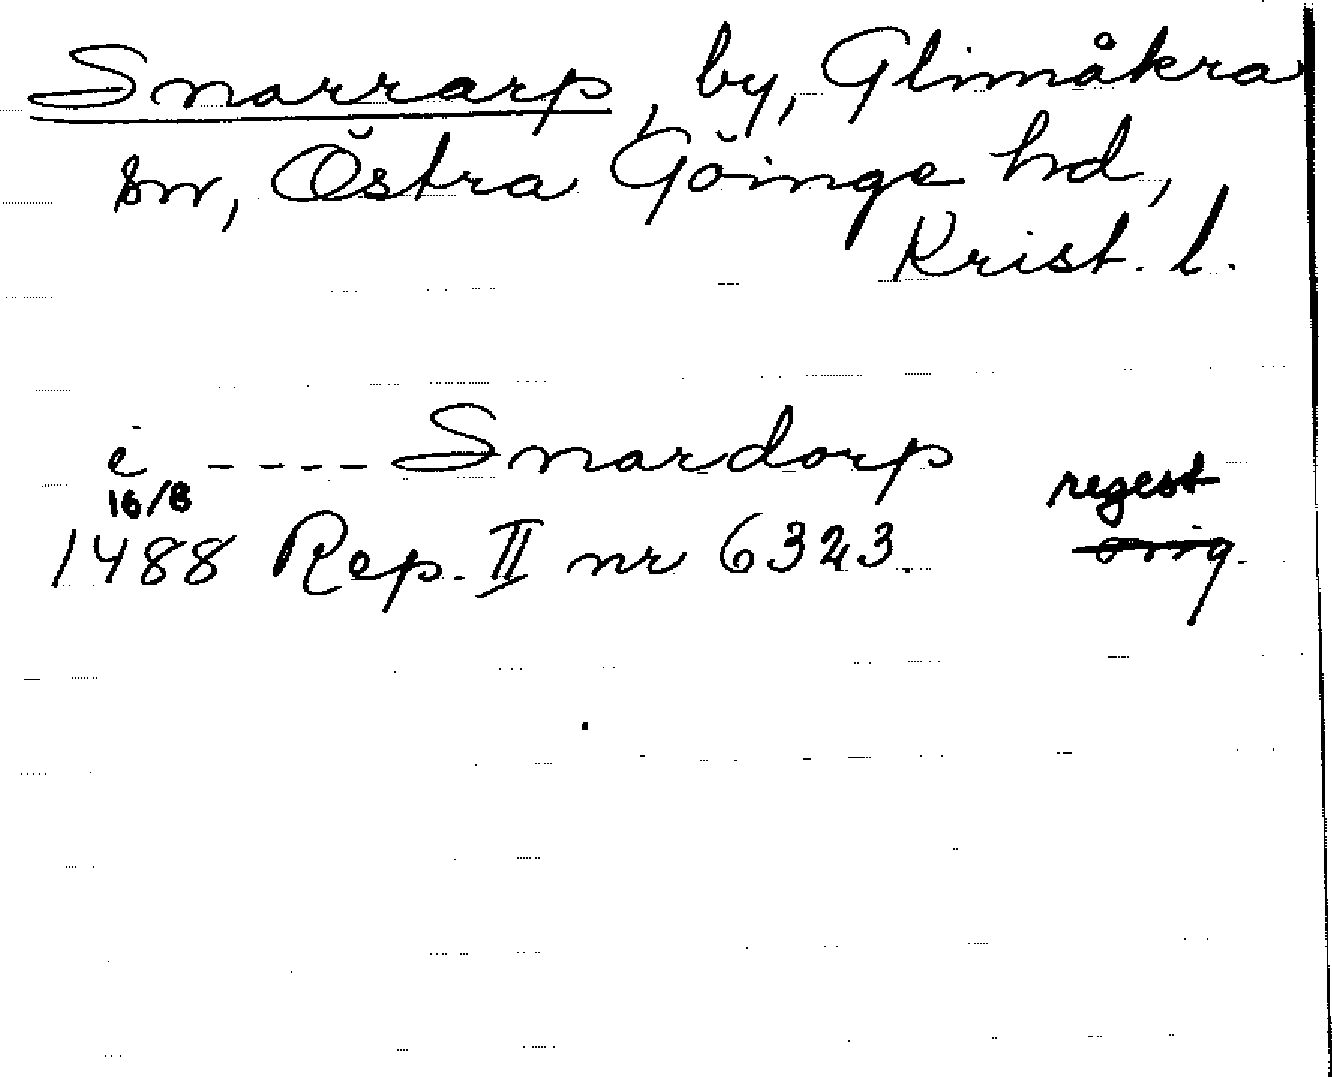 Snarrarp, by, Glimåkra
sn, Östra Göinge hd,
Krist. l.
i ---- Snardorp
16/8
regest
1488 Rep. II nr 6323. orig.